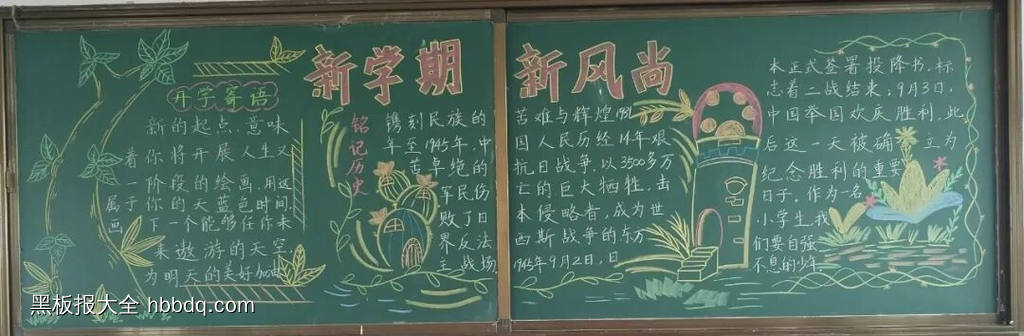 新学期 新风尚
开学寄语
新的起点,意味
着你将开展人生又
一阶段的绘画,用这
属于你的天蓝色时间,
画下一个能够任你未
来遨游的天空
为明天的美好加油
铭记历史
镌刻民族的
苦难与辉煌1931
年至1945年,中
国人民历经14年艰
苦卓绝的
抗日战争,以3500多万
军民伤
亡的巨大牺牲,击
败了日
本侵略者,成为世
界反法
西斯战争的东方
主战场
1945年9月2日,日
本正式签署投降书,标
志着二战结束;9月3日,
中国举国欢庆胜利,此
后这一天被确立为
纪念胜利的重要
日子,作为一名
小学生,我
们要自强
不息的少年
黑板报大全 hbbdq.com